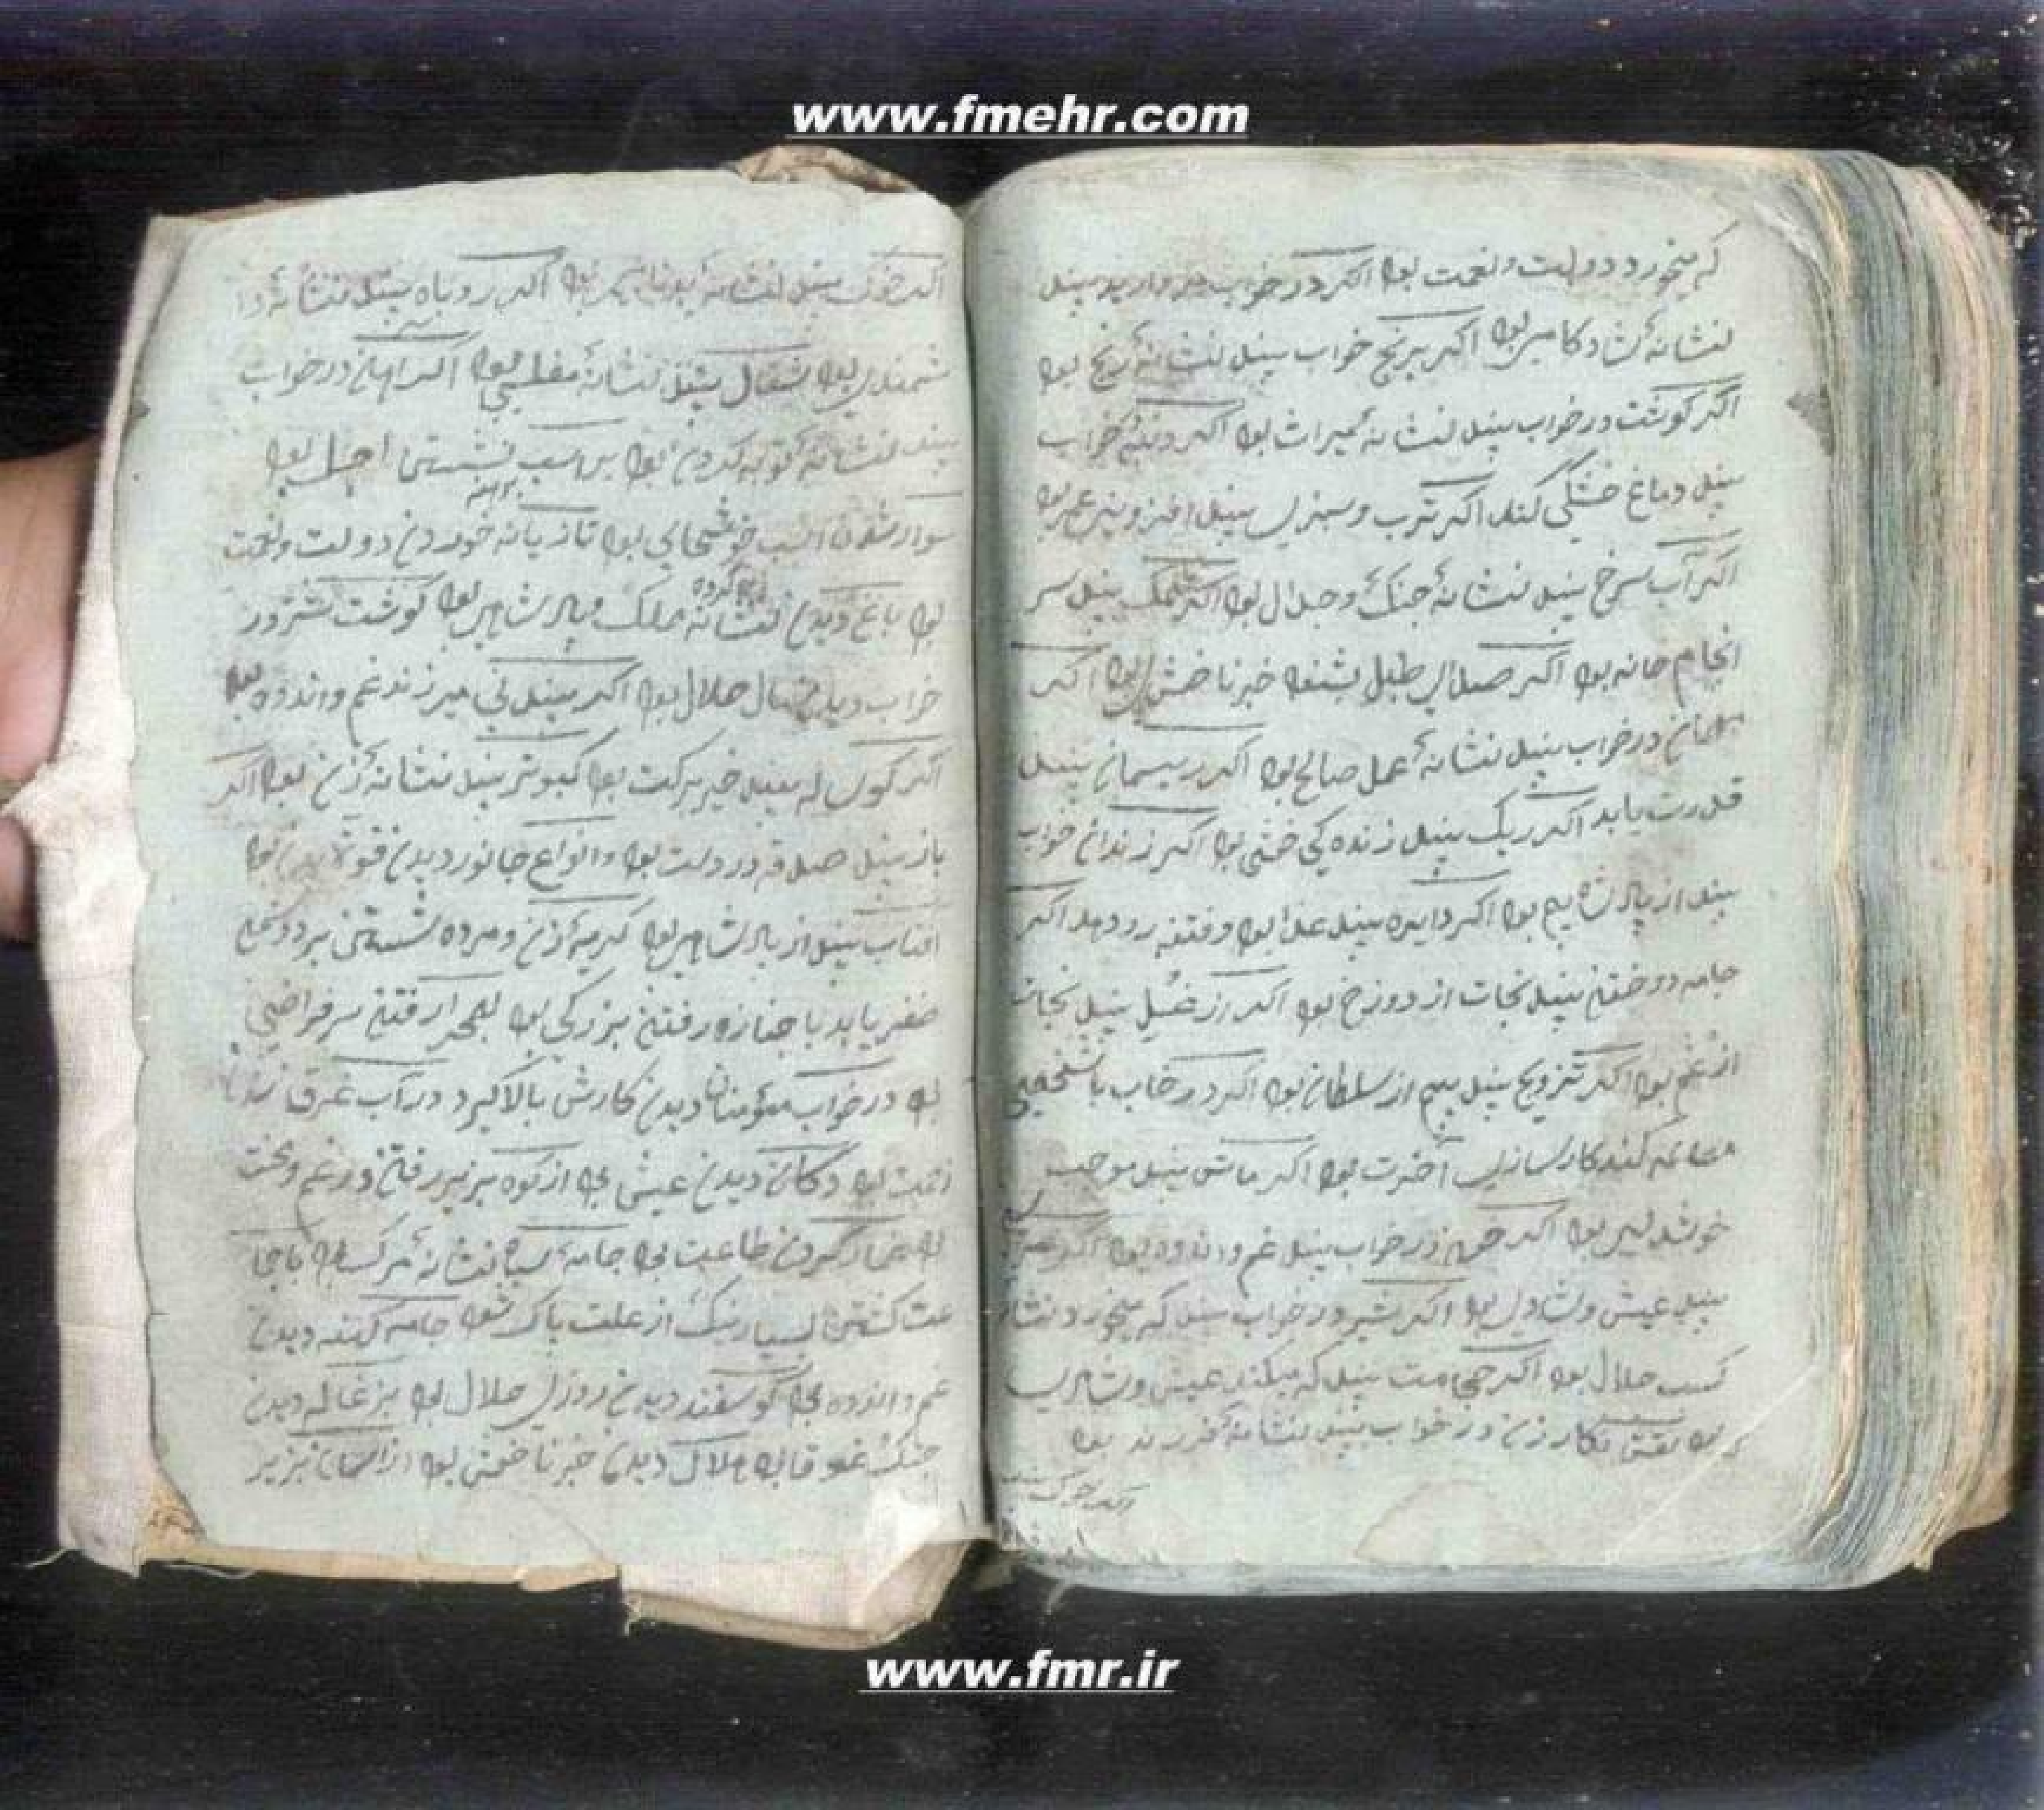 www.fmehr.com
که میخورد دولت و نعمت بود اگر در خواب مروارید بیند
نشانهٔ شادکامی بود اگر برنج خواب بیند نشانهٔ رنج بود
اگر گوشت در خواب بیند نشانهٔ میراث بود اگر دنبه خواب
بیند دماغ خشکی کند اگر ترب و سبزی بیند افزونی عمر بود
اگر آب سرخ بیند نشانهٔ جنگ و جدال بود اگر نمک بیند سر
انجام خانه بود اگر صدای طبل بشنود خبر ناخش بود اگر
در خواب بیند نشانهٔ عمل صالح بود اگر ریسمان بیند
قدرت یابد اگر ریگ بیند زنده کی خشی بود اگر زندان خواب
بیند از پادشاه بیم بود اگر دایره بیند عذاب بود و فتنه رو دهد اگر
جامه دوختن بیند نجات از دوزخ بود اگر از غسل بیند نجات
از غم بود اگر تزویج بیند بیم از سلطان بود اگر در خاب با شخصی
معامله کند کارسازی آخرت بود اگر ماش بیند موجب
بود اگر در خواب بیند غم و اندوه بود اگر
بیند عیش و شادی بود اگر شیر در خواب بیند که میخورد نشان
کسب حلال بود اگر حجامت بیند که میکند عیش و شادی
بود نقش نگار زن در خواب بیند نشانهٔ فرزند بود
اگر خوک بیند
اگر خوک بیند نشانهٔ بود اگر روباه بیند نشانهٔ دا
شمندی بود شغال بیند نشانهٔ مفلسی بود اگر در خواب
بیند نشانهٔ توبه کردن بود بر اسب نشستن اجل بود
برهنه
سوار شدن اسب خوشحالی بود تازیانه خوردن دولت و نعمت
بود باغ دیدن نشانهٔ ملک و پادشاهی بود گوشت شتر در
خواب دیدن مال حلال بود اگر بیند نی میزند غم و اندوه بود
اگر بیند خیر برکت بود کبوتر بیند نشانهٔ زن بود اگر
باز بیند صدقه در دولت بود و انواع جانور دیدن
افتاب بیند از پادشاهی بود گریهٔ زن و مرده شستن بر دشمن
ضفر یابد با جنازه رفتن بزرگی بود رفتن سرفرازی
بود در خواب مؤمنان دیدن کارش بالا گیرد در آب غرق شدن
نعمت بود دکان دیدن عیش بود از کوه بزیر رفتن در غم و محنت
بود نماز کردن طاعت بود جامهٔ سیاه نشانهٔ مرگ بود با جما
عت کشتن بسیار نیک از علت پاک شود جامه کهنه دیدن
غم و اندوه بود گوسفند دیدن روزی حلال بود بزغاله دیدن
جنگ غوقا بود هلال دیدن خبر ناخش بود از اسمان بزیر
www.fmr.ir